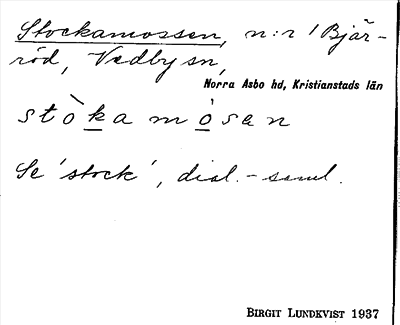 Stockamossen, n:r 1 Bjär-
röd, Vedby sn,
Norra Asbo hd, Kristianstads län
stò̱kamo̱̍sen
Se 'stock', dial.-saml.
BIRGIT LUNDKVIST 1937